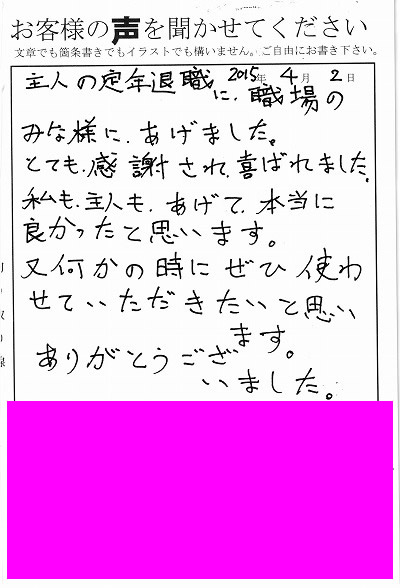 お客様の声を聞かせてください
文章でも箇条書きでもイラストでも構いません。ご自由にお書き下さい。
2015年 4月 2日
主人の定年退職に、職場の
みな様に、あげました。
とても、感謝され、喜ばれました。
私も、主人も、あげて、本当に
良かったと思います。
又何かの時にぜひ使わ
せていただきたいと思い
ます。
ありがとうござ
いました。